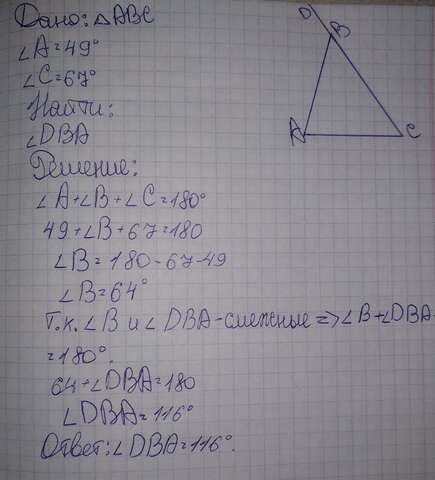 Дано: △ABC
∠A=49°
∠C=67°
Найти:
∠DBA
Решение:
∠A+∠B+∠C=180°
49+∠B+67=180
∠B=180-67-49
∠B=64°
Т.к. ∠B и ∠DBA-смежные=>∠B+∠DBA
=180°.
64+∠DBA=180
∠DBA=116°
Ответ:∠DBA=116°.
D
B
A
C